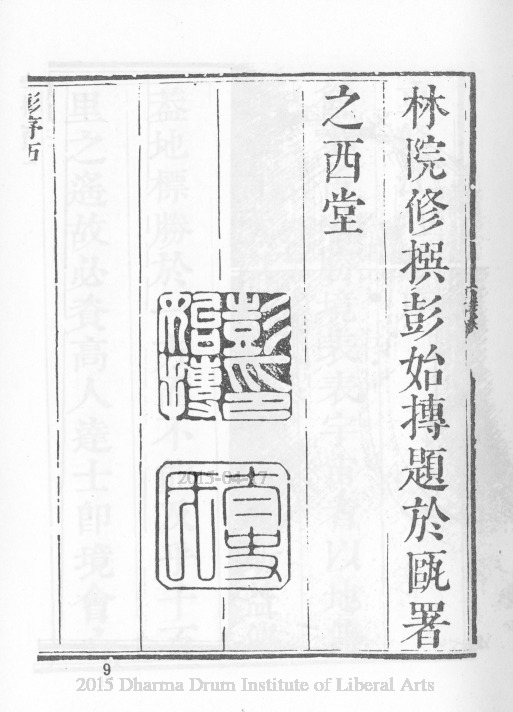 林院修撰彭始摶題於甌署
之西堂
彭印始摶
直史氏
彭序五
2015-04-17
9
2015 Dharma Drum Institute of Liberal Arts